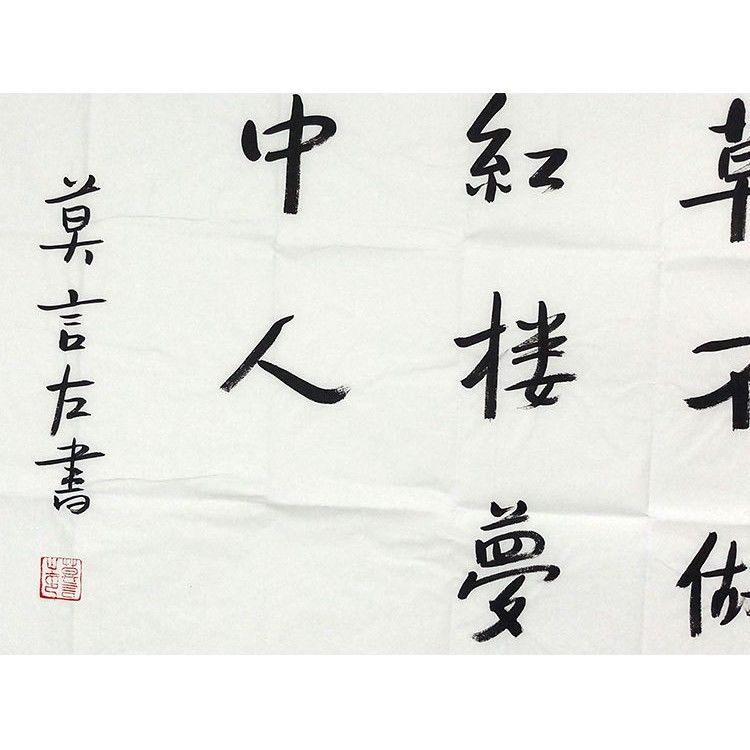 草不做
紅楼夢
中人
莫言左書